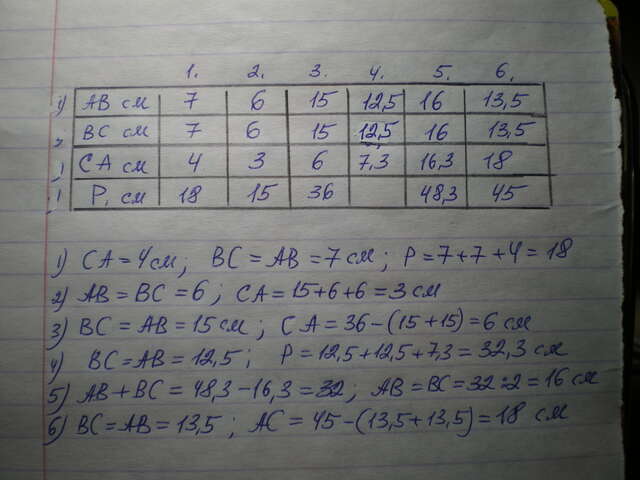 1. 2. 3. 4. 5. 6.
1) AB см 7 6 15 12,5 16 13,5
BC см 7 6 15 12,5 16 13,5
CA см 4 3 6 7,3 16,3 18
P, см 18 15 36 48,3 45
1) CA = 4 см; BC = AB = 7 см; P = 7 + 7 + 4 = 18
2) AB = BC = 6; CA = 15 + 6 + 6 = 3 см
3) BC = AB = 15 см; CA = 36 - (15 + 15) = 6 см
4) BC = AB = 12,5; P = 12,5 + 12,5 + 7,3 = 32,3 см
5) AB + BC = 48,3 - 16,3 = 32; AB = BC = 32 : 2 = 16 см
6) BC = AB = 13,5; AC = 45 - (13,5 + 13,5) = 18 см